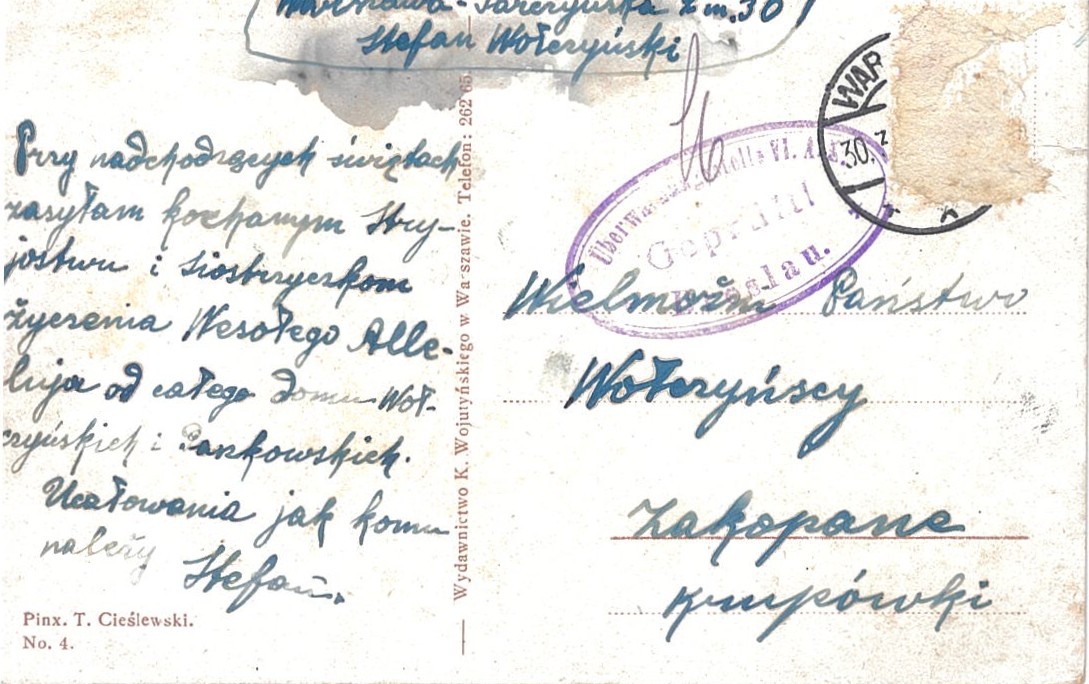 Warszawa - m. 30
Stefan Wołczyński
Przy nadchodzących świętach
zasyłam kochanym Stry-
jostwu i siostrzyczkom
życzenia Wesołego Alle-
luja od całego domu Woł-
czyńskich i
Ucałowania jak komu
należy
Stefan.
Pinx. T. Cieślewski.
No. 4.
Wydawnictwo K. Wojutyńskiego w Warszawie. Telefon: 262 65.
WAR
30.
VI. A.
Geprüft
Breslau.
Wielmożni Państwo
Wołczyńscy
Zakopane
Krupówki